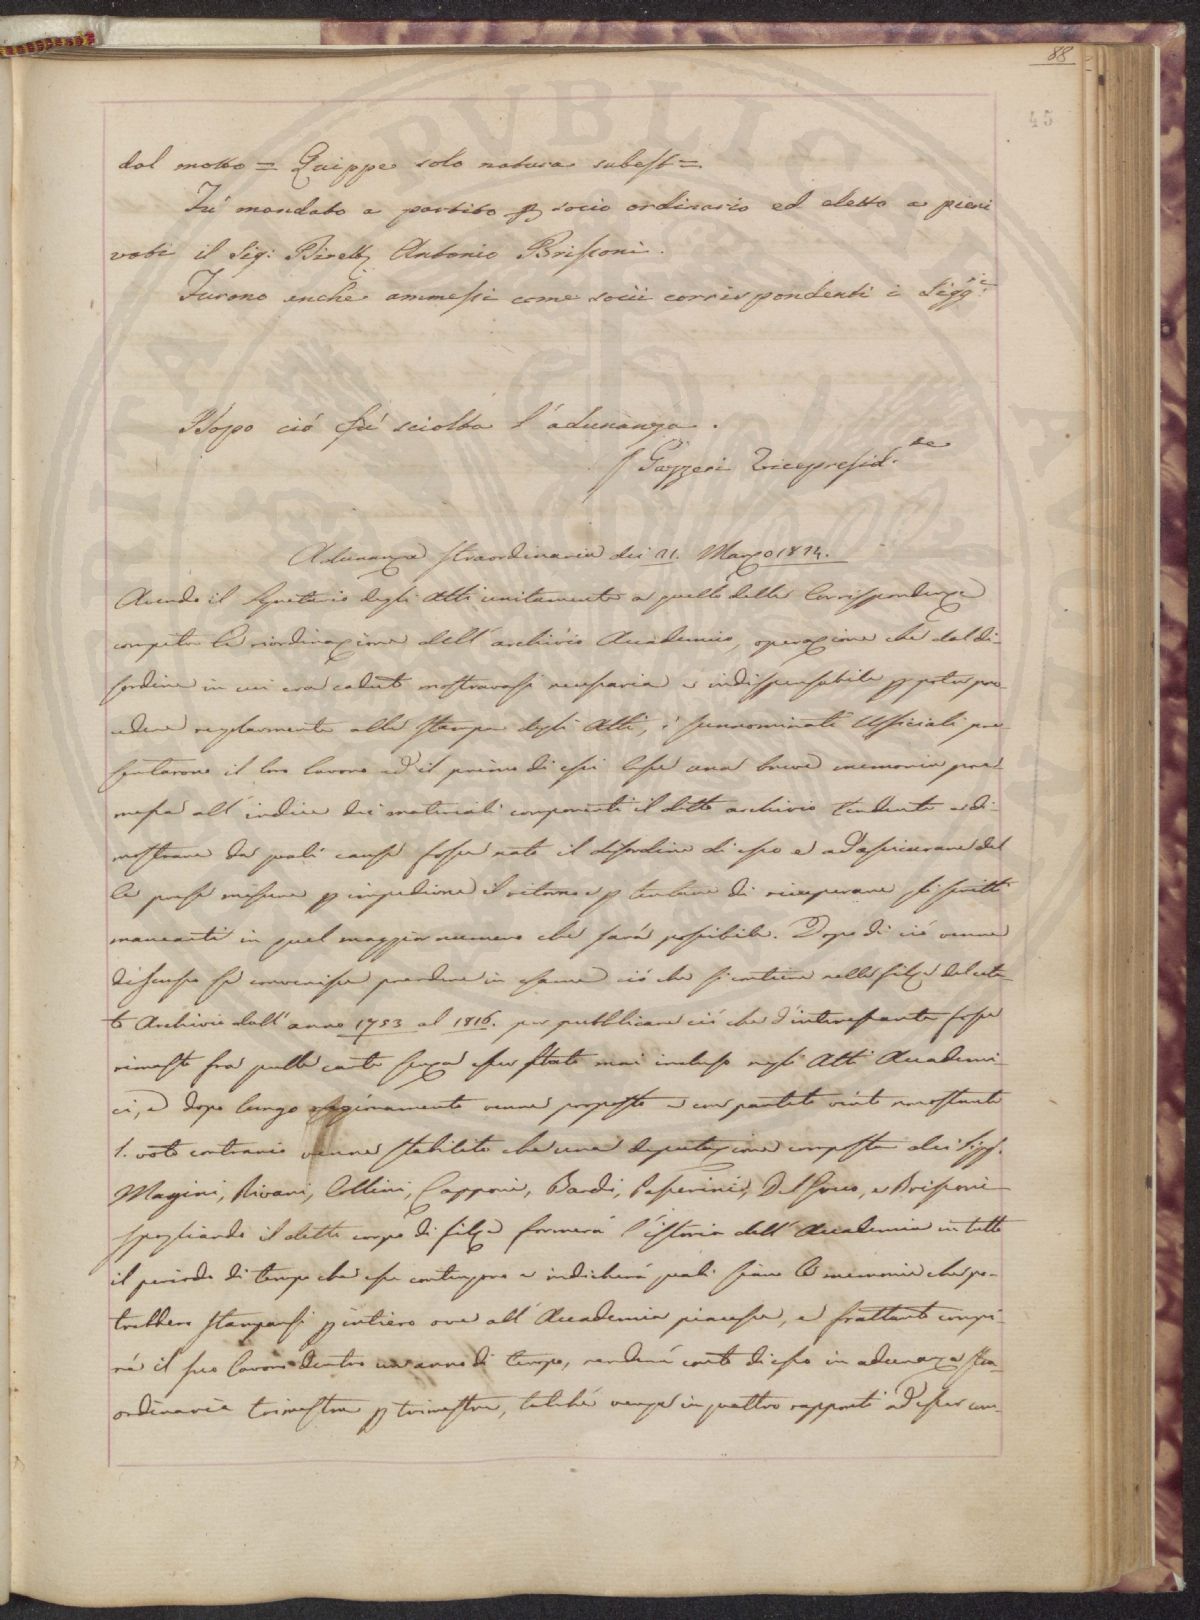 88
45
dal motto = Quippe solo natura subest =.
Fù mandato a partito p socio ordinario ed eletto a pieni
voti il Sig: Dirett. Antonio Brisconi.
Furono anche ammessi come socii corrispondenti i Sigg.i
Dopo ciò fù sciolta l'adunanza.
Gazzeri Vicepresid.te
Adunanza straordinaria dei 21. Marzo 1824.
Avendo il Segretario degli Atti unitamente a quello delle Corrispondenze
compita la riordinazione dell'archivio Accademico, operazione che dal di-
sordine in cui era caduto mostravasi necessaria e indispensabile p poter pro-
cedere regolarmente alla stampa degli Atti, i sunnominati Ufficiali pre-
sentarono il loro lavoro ed il primo di essi lesse una breve memoria pre-
messa all'indice dei materiali componenti il detto archivio tendente a di-
mostrare da quali cause fosse nato il disordine di esso e ad assicurare del-
le prese misure p impedirne il ritorno e p tentare di ricuperare gli scritti
mancanti in quel maggior numero che sarà possibile. Dopo di ciò venne
discusso se convenisse prendere in esame ciò che si contiene nelle filze del cita-
to Archivio dall'anno 1753 al 1816. per pubblicare ciò che d'interessante fosse
rimasto fra quelle carte senza esser stato mai incluso negli Atti Accademi-
ci, e dopo lungo ragionamento venne proposto e con partito vinto nonostante
1. voto contrario venne stabilito che una deputazione composta dei Sigg.
Magini, Rivani, Collini, Capponi, Bardi, Passerini, Del Greco, e Brisconi
spogliando il detto corpo di filze formerà l'istoria dell'Accademia in tutto
il periodo di tempo che esse contengono e indicherà quali siano le memorie che po-
trebbero stamparsi p intiero ove all'Accademia piacesse, e frattanto compi-
rà il suo lavoro dentro un anno di tempo, renderà conto di esso in adunanza stra-
ordinaria trimestre p trimestre, talché venga in quattro rapporti ad esser com-